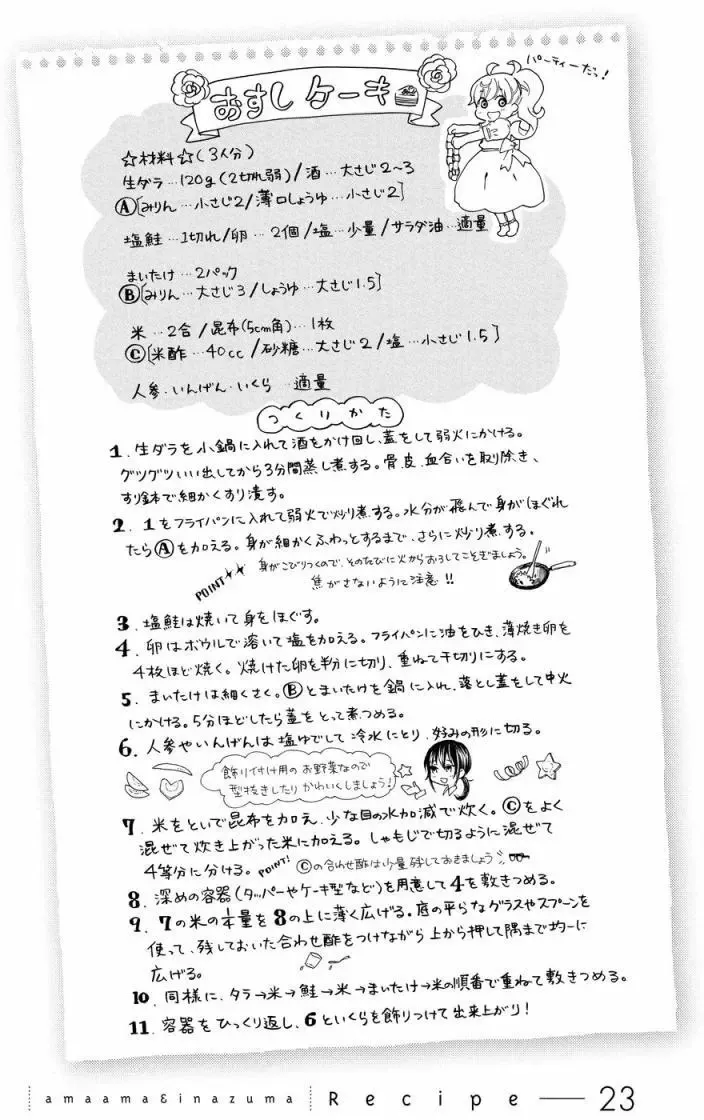 パーティーだっ!
おすしケーキ
☆材料☆(3人分)
生ダラ…120g(2切れ弱)/酒…大さじ2~3
Ⓐ[みりん…小さじ2/薄口しょうゆ…小さじ2]
塩鮭…1切れ/卵…2個/塩…少量/サラダ油…適量
まいたけ…2パック
Ⓑ[みりん…大さじ3/しょうゆ…大さじ1.5]
米…2合/昆布(5cm角)…1枚
Ⓒ[米酢…40cc/砂糖…大さじ2/塩…小さじ1.5]
人参・いんげん・いくら…適量
つくりかた
1. 生ダラを小鍋に入れて酒をかけ回し、蓋をして弱火にかける。
グツグツいい出してから3分間蒸し煮する。骨、皮、血合いを取り除き、
すり鉢で細かくすり潰す。
2. 1をフライパンに入れて弱火で炒り煮する。水分が飛んで身がほぐれ
たらⒶを加える。身が細かくふわっとするまで、さらに炒り煮する。
POINT 身がこびりつくので、そのたびに火からおろしてこそぎましょう。
焦がさないように注意!!
3. 塩鮭は焼いて身をほぐす。
4. 卵はボウルで溶いて塩を加える。フライパンに油をひき、薄焼き卵を
4枚ほど焼く。焼けた卵を半分に切り、重ねて千切りにする。
5. まいたけは細くさく。Ⓑとまいたけを鍋に入れ、落とし蓋をして中火
にかける。5分ほどしたら蓋をとって煮つめる。
6. 人参やいんげんは塩ゆでして冷水にとり、好みの形に切る。
飾り付け用のお野菜なので
型抜きしたりかわいくしましょう!
7. 米をといで昆布を加え、少な目の水加減で炊く。Ⓒをよく
混ぜて炊き上がった米に加える。しゃもじで切るように混ぜて
4等分に分ける。POINT! Ⓒの合わせ酢は少量残しておきましょう
8. 深めの容器(タッパーやケーキ型など)を用意して4を敷きつめる。
9. 7の米の1/4量を8の上に薄く広げる。底の平らなグラスやスプーンを
使って、残しておいた合わせ酢をつけながら上から押して隅まで均一に
広げる。
10. 同様に、タラ→米→鮭→米→まいたけ→米の順番で重ねて敷きつめる。
11. 容器をひっくり返し、6といくらを飾りつけて出来上がり!
amaama&inazuma Recipe 23